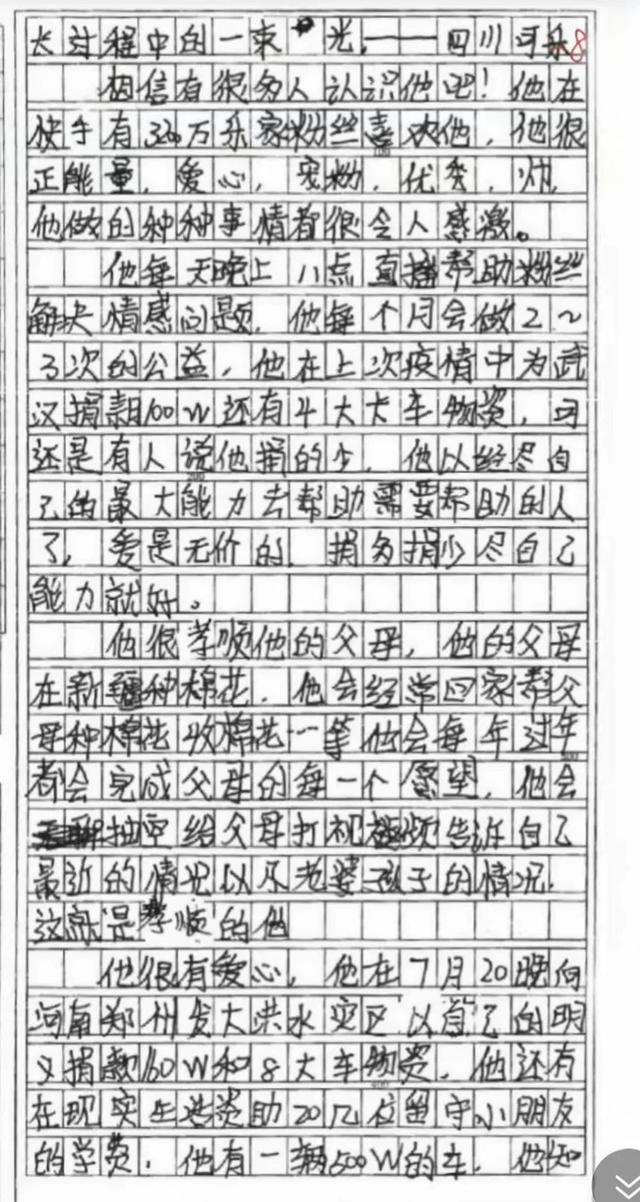 长过程中的一束光.——四川可乐 8
相信有很多人认识他吧！他在
快手有320万乐家粉丝喜欢他，他很
正能量，爱心，宠粉，优秀，帅，
他做的种种事情都很令人感激。
他每天晚上八点直播帮助粉丝
解决情感问题. 他每个月会做2~
3次的公益，他在上次疫情中为武
汉捐款100W还有4大卡车物资，可
还是有人说他捐的少，他以经尽自
己的最大能力去帮助需要帮助的人
了，爱是无价的，捐多捐少尽自己
能力就好。
他很孝顺他的父母，他的父母
在新疆种棉花. 他会经常回家帮父
母种棉花收棉花…等他会每年过年
都会完成父母的每一个愿望，他会
抽空给父母打视频告诉自己
最近的情况以及老婆孩子的情况.
这就是孝顺的他
他很有爱心，他在7月20晚向
河南郑州发大洪水灾区以自己的明
义捐款160W和8大车物资. 他还有
在现实生活资助20几位留守小朋友
的学费. 他有一辆500W的车. 他知